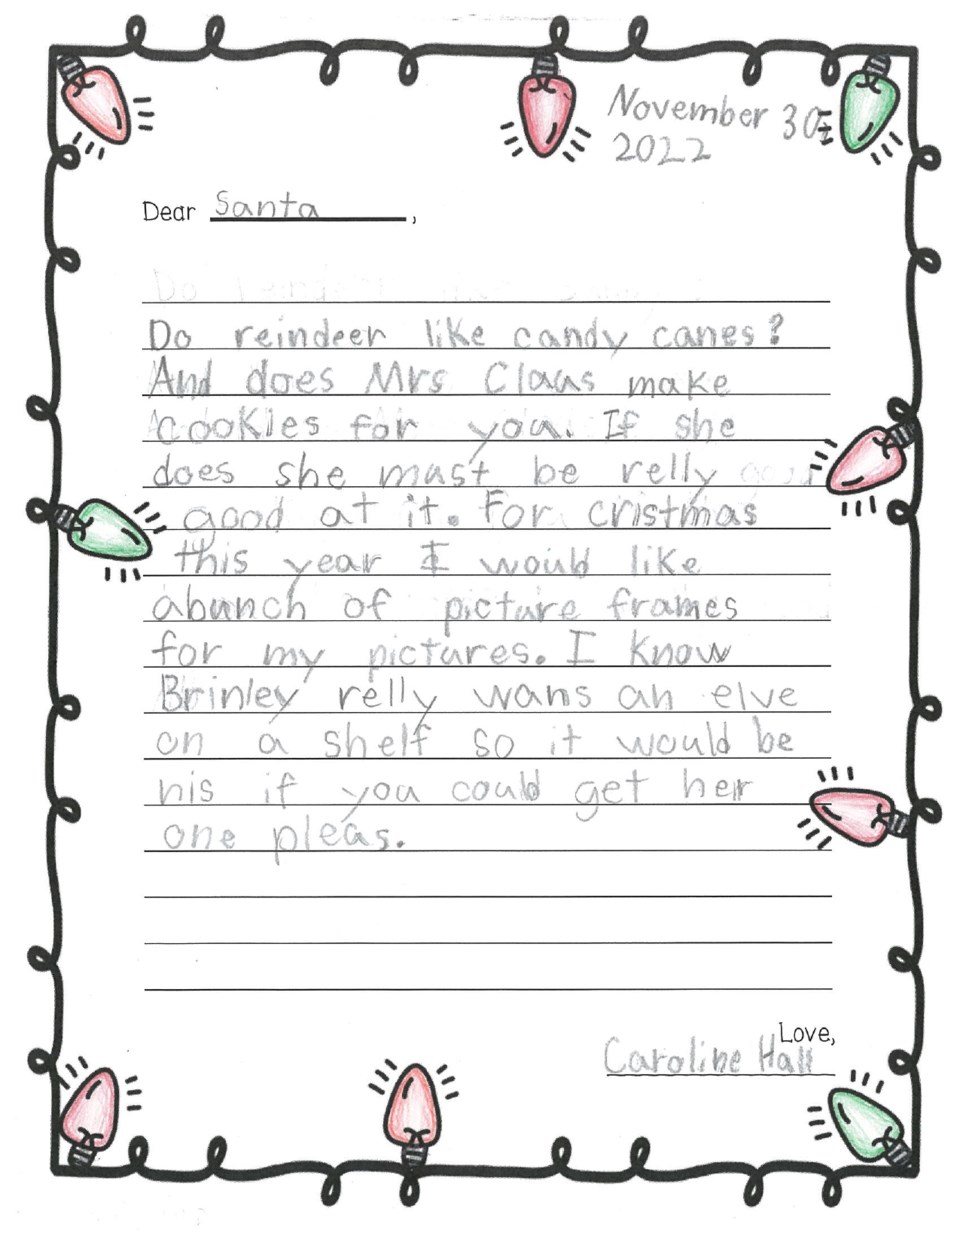 November 30,
2022
Dear Santa,
Do reindeer like candy canes?
And does Mrs Claus make
cookies for you. If she
does she must be relly
good at it. For cristmas
this year I would like
abunch of picture frames
for my pictures. I know
Brinley relly wans an elve
on a shelf so it would be
nis if you could get her
one pleas.
Love,
Caroline Hall